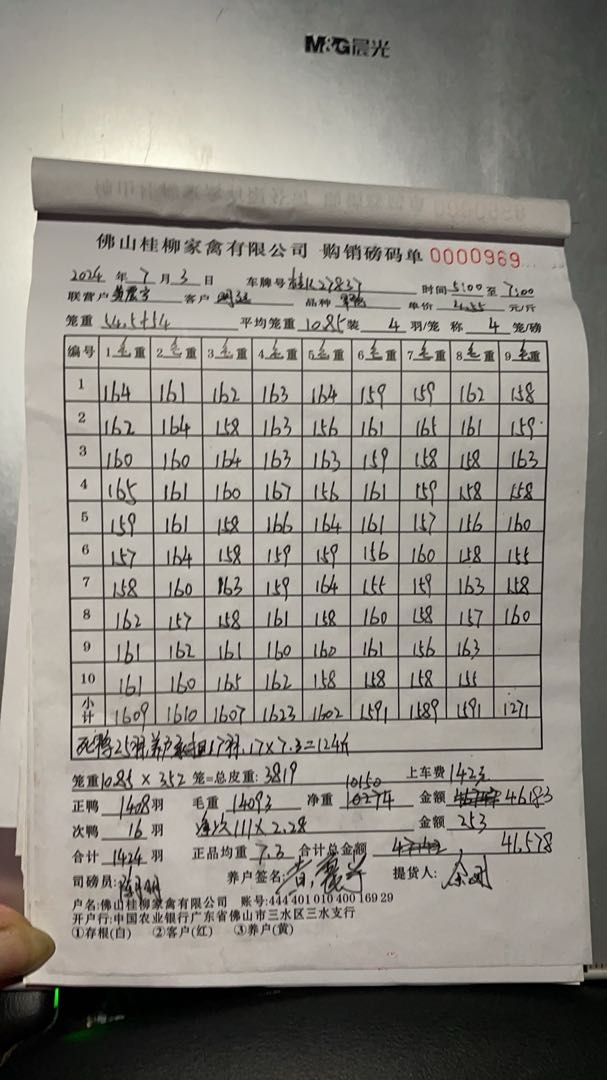 M&G晨光
佛山桂柳家禽有限公司 购销磅码单 0000969
2024 年 7 月 3 日 车牌号 27837 时间 5:00 至 7:00
联营户 黄震宇 客户 品种 单价 4.55 元/斤
笼重 54.5+54 平均笼重 10.85 装 4 羽/笼 称 4 笼/磅
编号 1 毛重 2 毛重 3 毛重 4 毛重 5 毛重 6 毛重 7 毛重 8 毛重 9 毛重
1 164 161 162 163 164 159 159 162 158
2 162 164 158 163 156 161 165 161 159
3 160 160 164 163 163 159 158 158 163
4 165 161 160 167 156 161 159 158 158
5 159 161 158 166 164 161 157 156 160
6 157 164 158 159 159 156 160 158 155
7 158 160 163 159 164 155 159 163 158
8 162 157 158 161 158 160 158 157 160
9 161 162 161 160 160 161 156 163
10 161 160 165 162 158 158 158 155
小计 1609 1610 1607 1623 1602 1591 1589 1591 1271
死鸭25羽,养户承担17羽.17×7.3=124斤
笼重 10.85 × 352 笼=总皮重: 3819 上车费 1423
正鸭 1408 羽 毛重 14093 净重 10274 10150 金额 46183
次鸭 16 羽 111×2.28 金额 253
合计 1424 羽 正品均重 7.3 合计总金额 41,578
司磅员: 养户签名: 黄震宇 提货人:
户名:佛山桂柳家禽有限公司 账号:444 401 010 400 169 29
开户行:中国农业银行广东省佛山市三水区三水支行
①存根(白) ②客户(红) ③养户(黄)